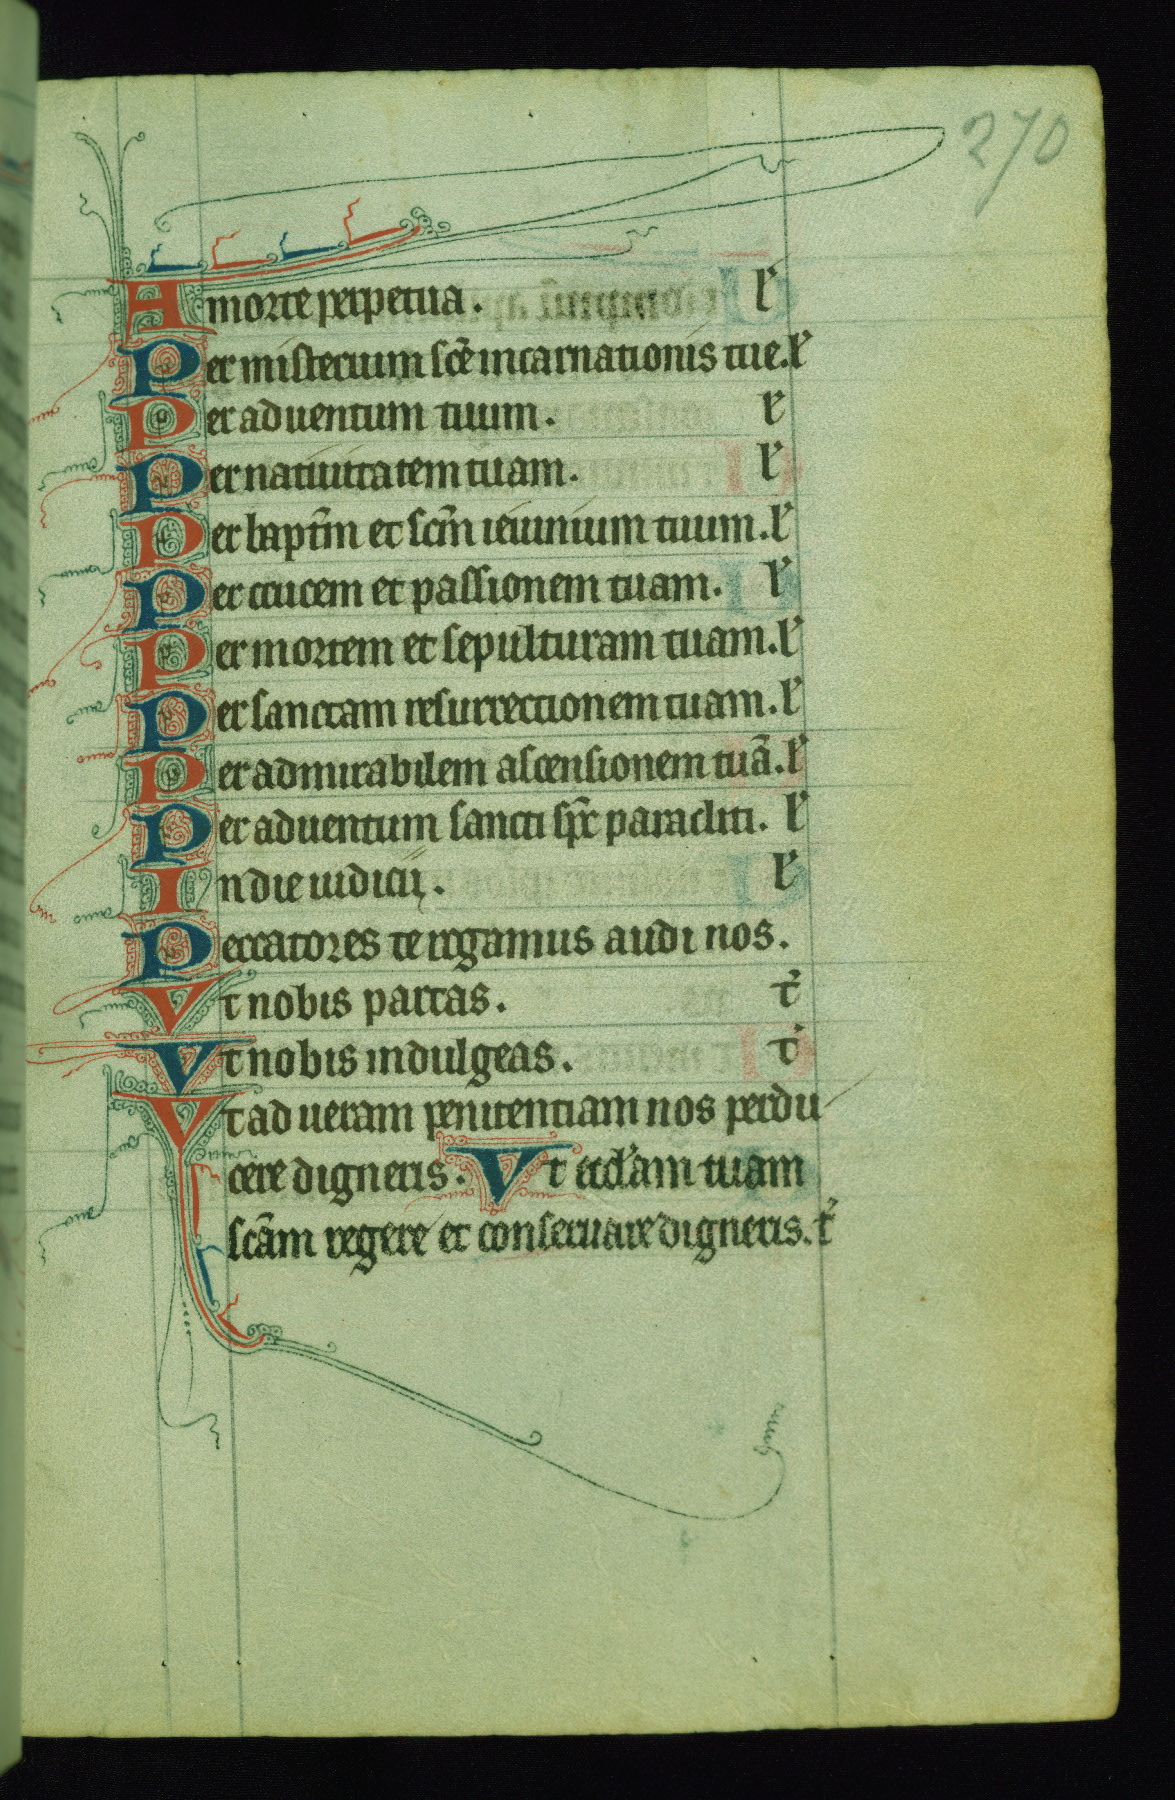 270
A morte perpetua. l̕
Per misterium sc̄e incarnationis tue. l̕
Per aduentum tuum. l̕
Per natiuitatem tuam. l̕
Per bapt̄m et sc̄m ieiunium tuum. l̕
Per crucem et passionem tuam. l̕
Per mortem et sepulturam tuam. l̕
Per sanctam resurrectionem tuam. l̕
Per admirabilem ascensionem tuā. l̕
Per aduentum sancti sp̄c paracliti. l̕
In die iudicii. l̕
Peccatores te rogamus audi nos.
Vt nobis parcas. t̕
Vt nobis indulgeas. t̕
Vt ad ueram penitentiam nos perdu
cere digneris. Vt eccl̕am tuam
sc̄am regere et conseruare digneris. t̕